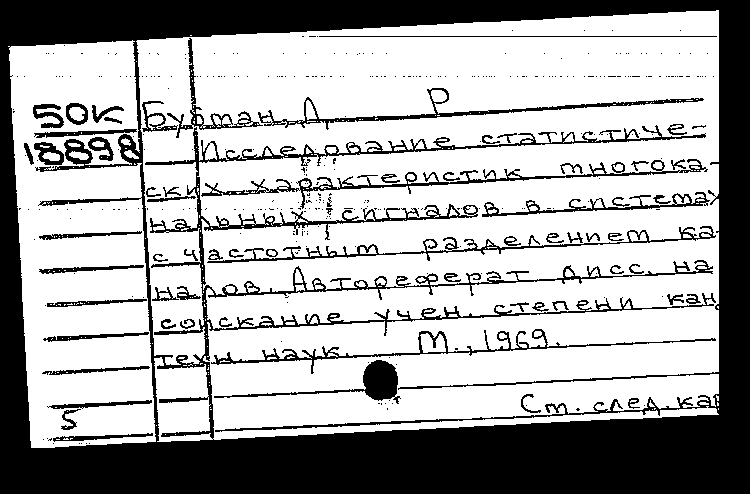 50К Бубман, Д. Р
18898 Исследование статистиче-
ских характеристик многока-
нальных сигналов в системах
с частотным разделением ка
налов. Автореферат дисс. на
соискание учен. степени кан
техн. наук. М., 1969.
5 Ст. след. кар